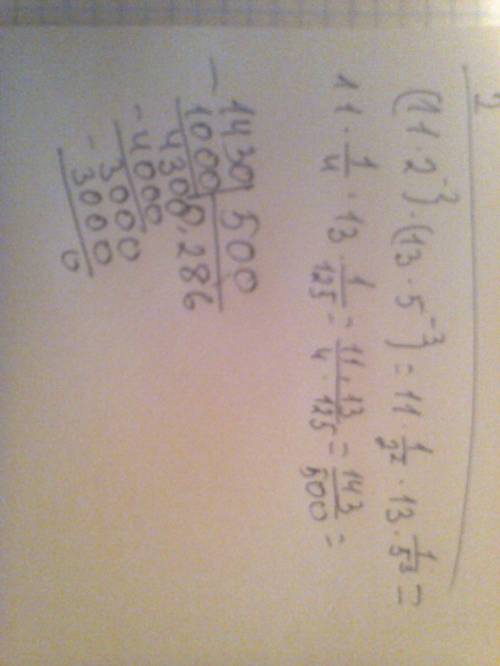 (11·2⁻³)·(13·5⁻³)=11·1/2²·13·1/5³=
11·1/4·13·1/125=11·13/4·125=143/500=
-1430|500
1000|0,286
4300
-4000
3000
-3000
0